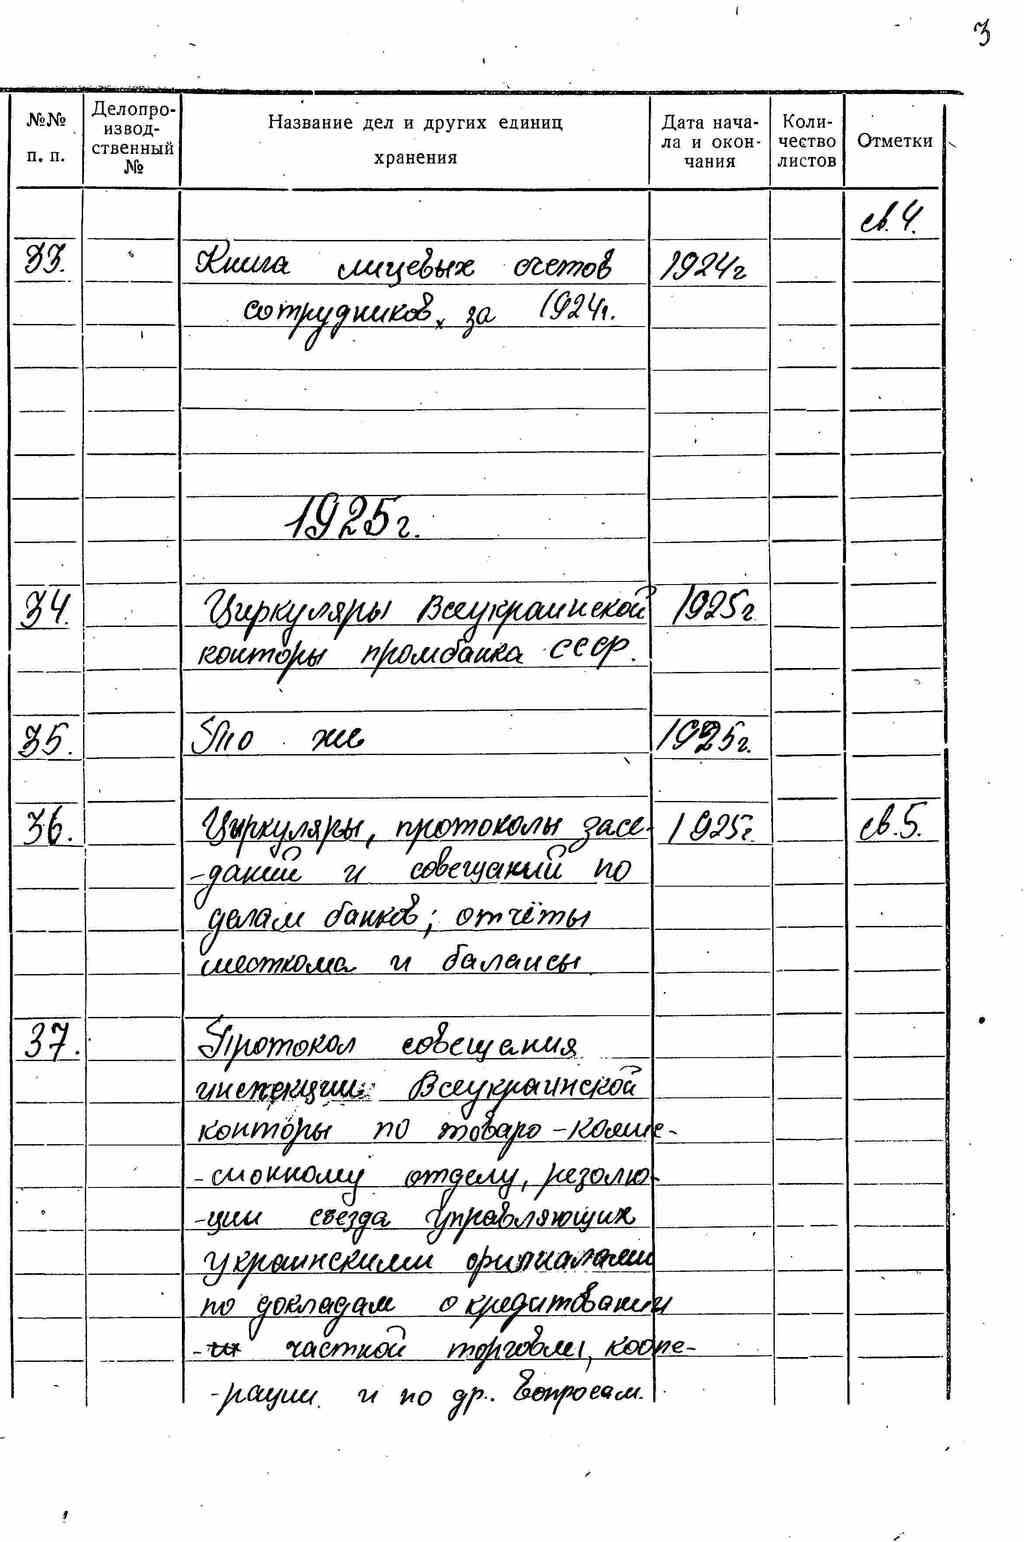 3
№№ п. п.
Делопро-
извод-
ственный
№
Название дел и других единиц
хранения
Дата нача-
ла и окон-
чания
Коли-
чество
листов
Отметки
св. 4.
33. Книга лицевых счетов 1924г
сотрудников за 1924г.
1925г.
34. Циркуляры Всеукраинской 1925г.
конторы промбанка СССР.
35. То же 1925г.
36. Циркуляры, протоколы засе- 1925г. св. 5.
-даний и совещаний по
делам банков; отчёты
месткома и балансы
37. Протокол совещания
инспекции Всеукраинской
конторы по товаро-комис-
-сионному отделу, резолю-
-ции съезда управляющих
украинскими филиалами
по докладам о кредитовании
- частной торговли, коопе-
-рации и по др. вопросам.